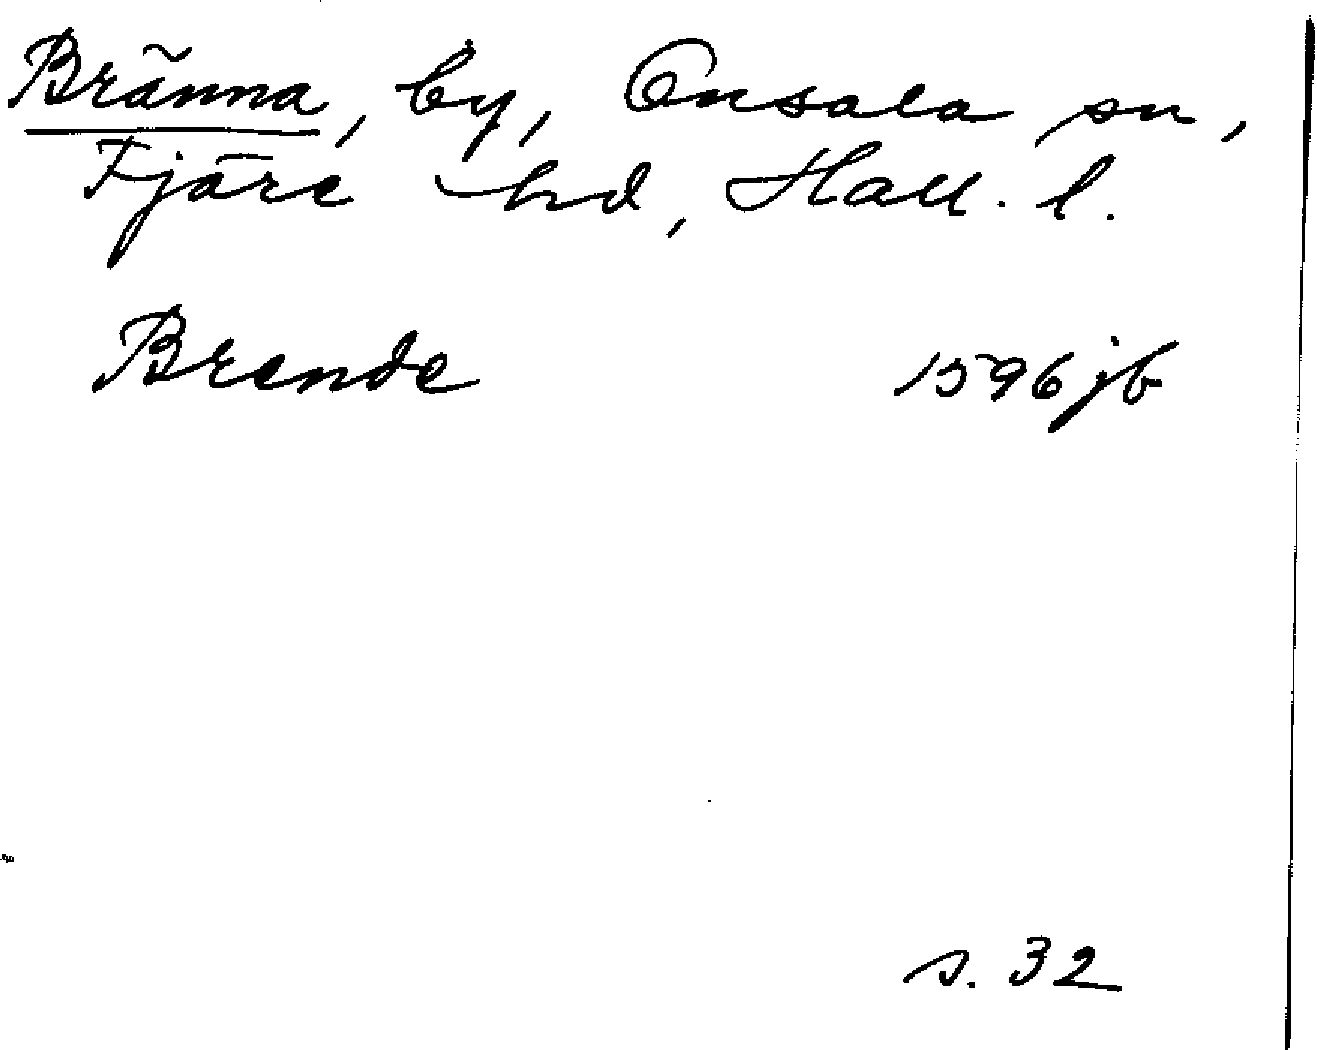 Bränna, by, Onsala sn,
Fjäre hd, Hall. l.
Brende 1596 jb
s. 32